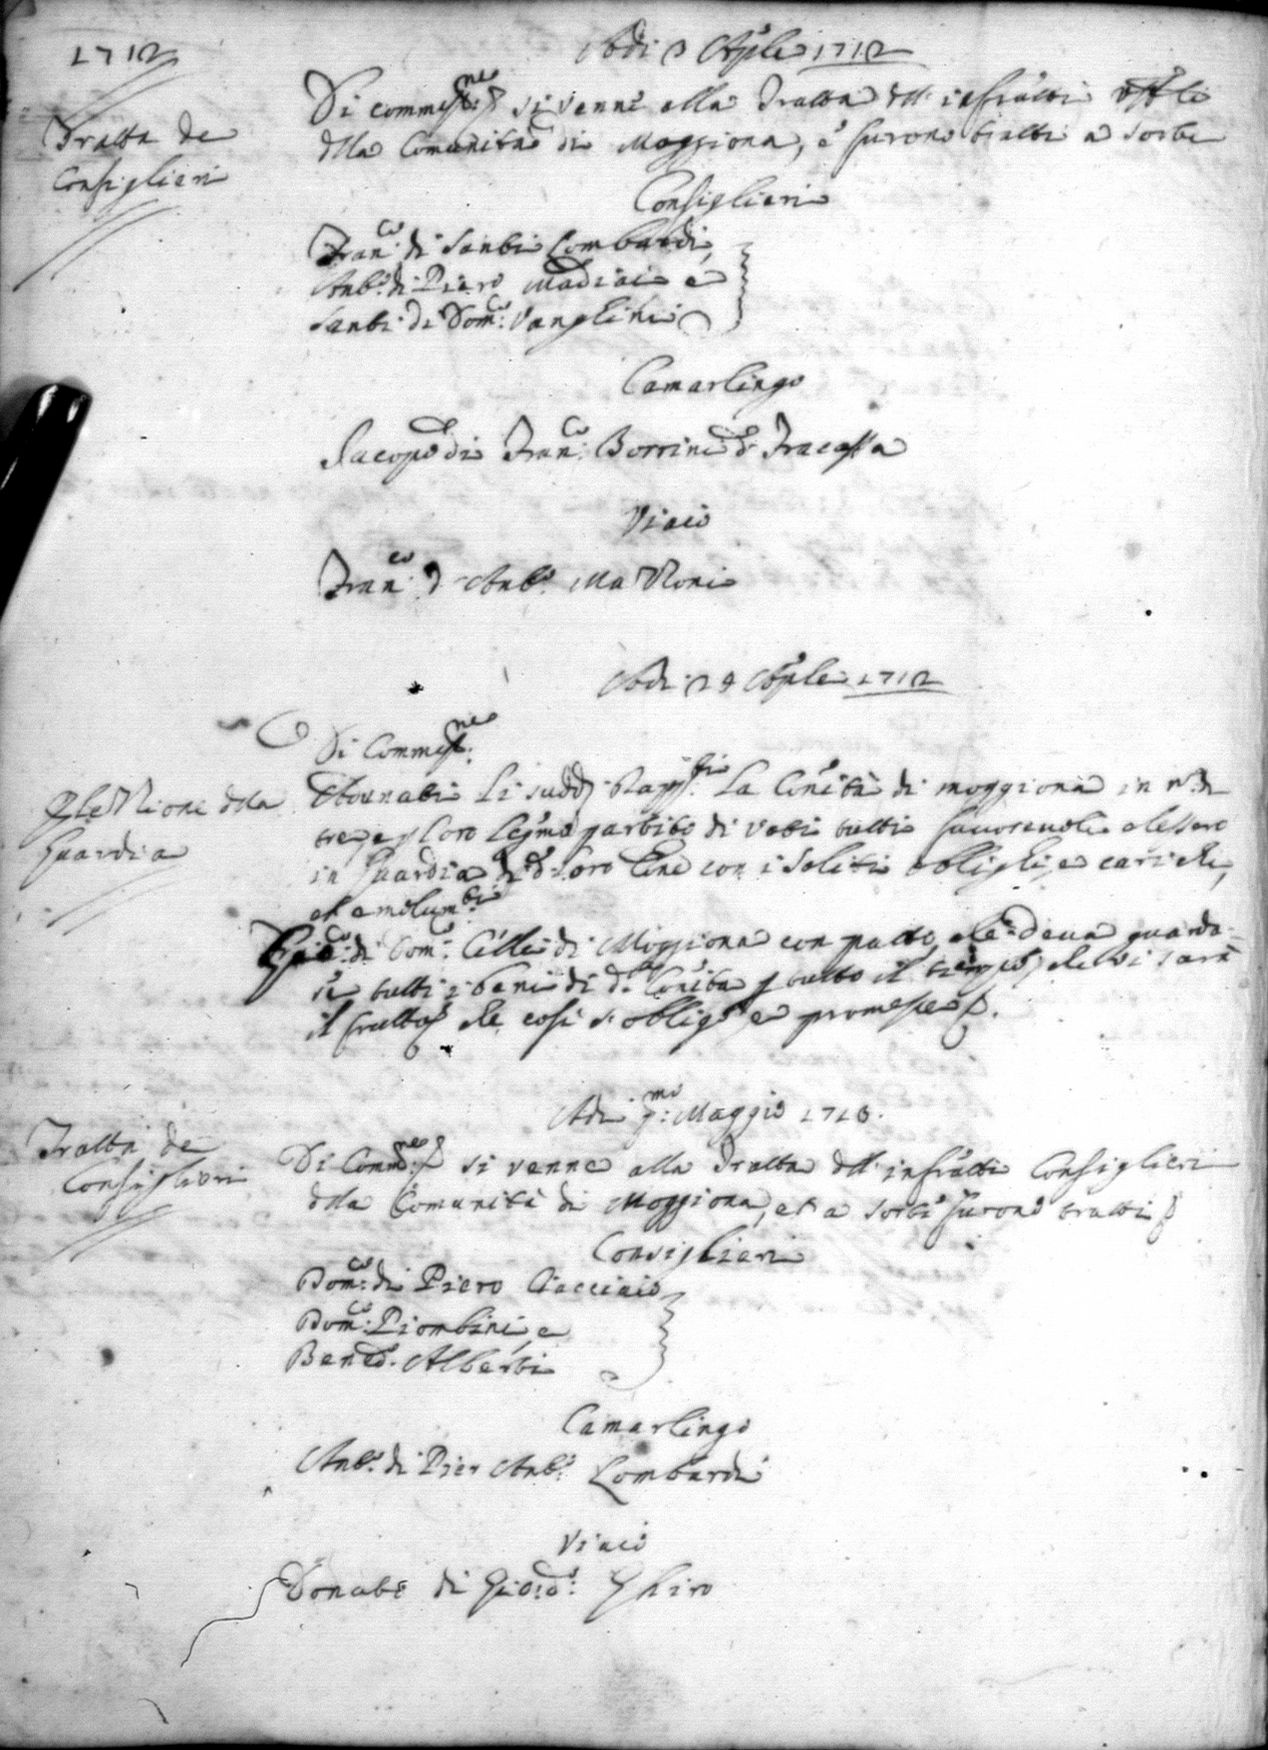 1712
Adi 2 Aple 1712
Tratta de
Consiglieri
Di commess.ne si venne alla Tratta dell infra.tti
dlla Comunità di Moggiona, e furono tratti a sorte
Consiglieri
Fran.co di Santi Lombardi,
Ant.o di Piero Madiai e
Santi di Dom.co Vangelini
Camarlingo
Iacopo di Fran.co Borrini d. Fracassa
Viaio
Fran.co d Ant.o Mazzoni
Adi 29 Aple 1712
Di Commess.ne
Elezzione dlla
Guardia
Adunati li sudd. Rapp.ti la Co.nità di moggiona in n.o di
tre e p loro leg.mo partito di voti tutti favorevoli elessero
in Guardia di d. loro Co.ne con i soliti obblighi e carichi,
et emolum.ti
di Dom.co di Moggiona con patto che deva guarda-
re tutti i beni di d.a Co.nità p tutto il tempo che vi sarà
il frutto che così s obligò e promesse p.
Adi p.mo Maggio 1713.
Tratta de
Consiglieri
Di Comm.ne p si venne alla Tratta dll infra.tti Consiglieri
dlla Comunità di Moggiona, et a sorte furono tratti p
Consiglieri
Dom.co di Piero Ciacciaio
Dom.co Piombini, e
Bened. Alberti
Camarlingo
Ant.o di Pier Ant.o Lombardi
Viaio
Donato di Ghiro